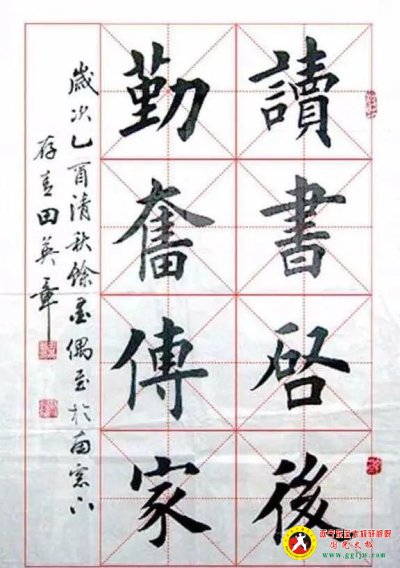 讀書啓後
勤奮傳家
歲次乙酉清秋餘墨偶至於南窓下
存青田英章
www.ggfjyw.com